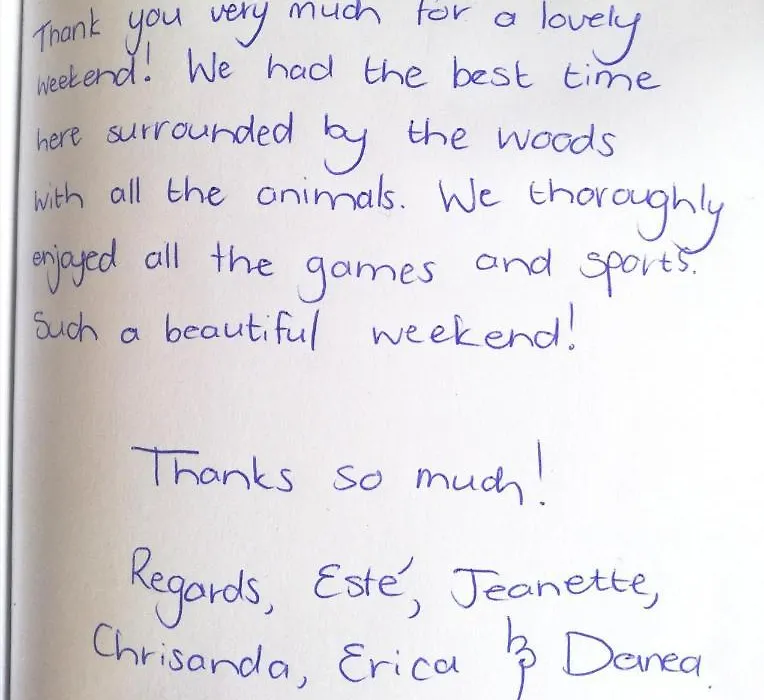 Thank you very much for a lovely
weekend! We had the best time
here surrounded by the woods
with all the animals. We thoroughly
enjoyed all the games and sports.
Such a beautiful weekend!
Thanks so much!
Regards, Esté, Jeanette,
Chrisanda, Erica & Danea.